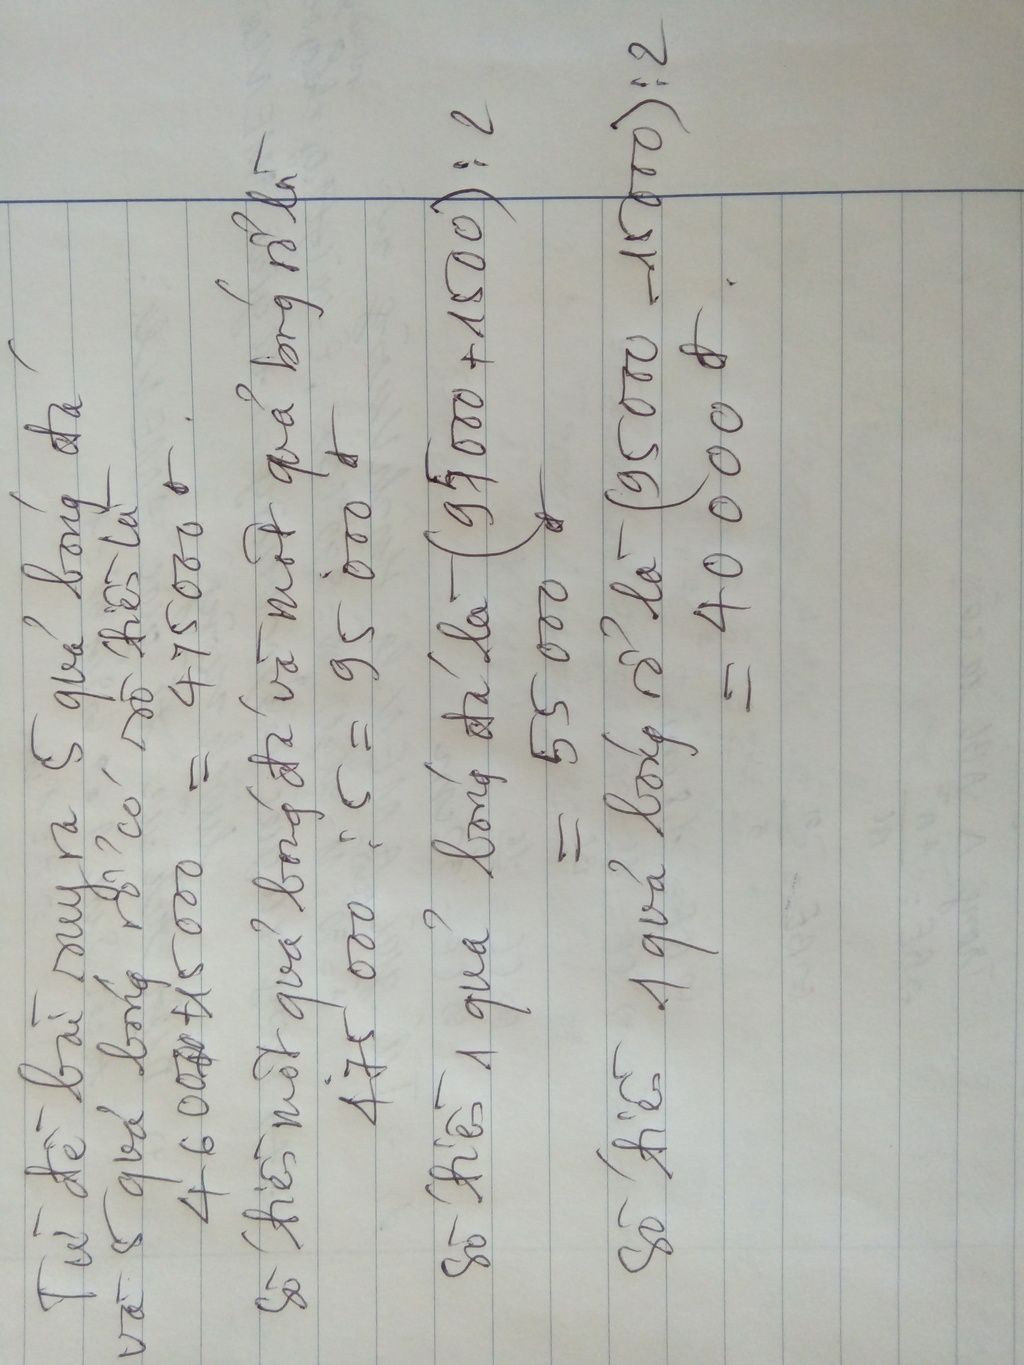 Từ đề bài suy ra 5 quả bóng đá
và 5 quả bóng rổ có số tiền là
460000+15000 = 475000 đ.
Số tiền một quả bóng đá và một quả bóng rổ là
475 000 : 5 = 95 000 đ
Số tiền 1 quả bóng đá là (95000+1500) : 2
= 55 000 đ
Số tiền 1 quả bóng rổ là (95000 -15000) : 2
= 40 000 đ.